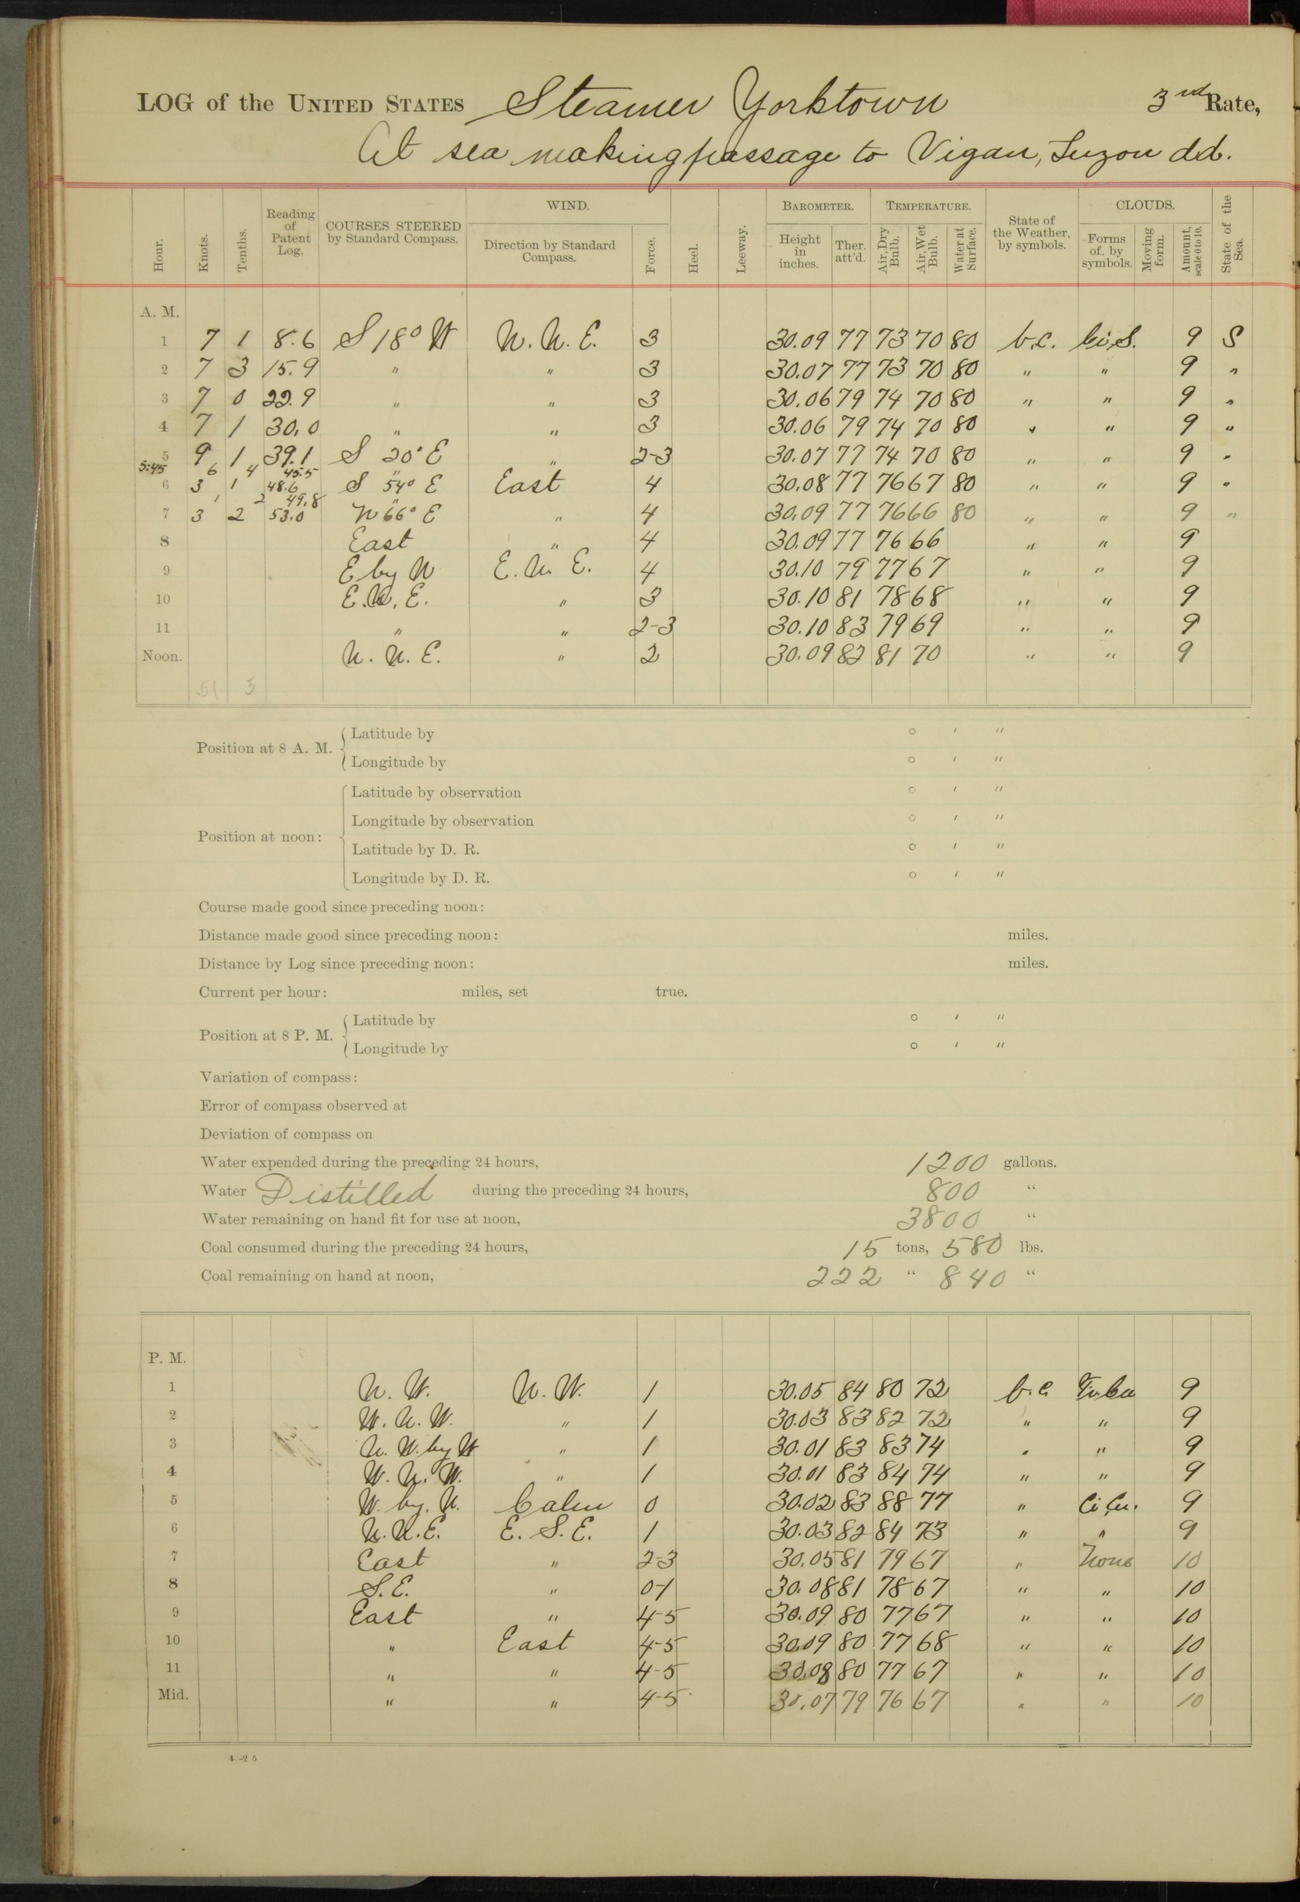 LOG of the UNITED STATES Steamer Yorktown 3rd Rate,
At sea making passage to Vigan, Luzon
Hour. Knots. Tenths. Reading of Patent Log. COURSES STEERED by Standard Compass. WIND. Direction by Standard Compass. Force. Heel. Leeway. BAROMETER. Height in inches. Ther. att'd. TEMPERATURE. Air, Dry Bulb. Air, Wet Bulb. Water at Surface. State of the Weather, by symbols. CLOUDS. Forms of, by symbols. Moving form. Amount, scale 0 to 10. State of the Sea.
A. M.
1 7 1 8.6 S 18° W N. N. E. 3 30.09 77 73 70 80 b.c. Ci.S. 9 S
2 7 3 15.9 " " 3 30.07 77 73 70 80 " " 9 "
3 7 0 22.9 " " 3 30.06 79 74 70 80 " " 9 "
4 7 1 30.0 " " 3 30.06 79 74 70 80 " " 9 "
5 9 1 39.1 S 20° E " 2-3 30.07 77 74 70 80 " " 9 "
5:45 6 4 45.5 "
6 3 1 48.6 S 54° E East 4 30.08 77 76 67 80 " " 9 "
1 2 49.8 "
7 3 2 53.0 N 66° E " 4 30.09 77 76 66 80 " " 9 "
8 East " 4 30.09 77 76 66 " " 9
9 E by N E. N. E. 4 30.10 79 77 67 " " 9
10 E.N.E. " 3 30.10 81 78 68 " " 9
11 " " 2-3 30.10 83 79 69 " " 9
Noon. N. N. E. " 2 30.09 82 81 70 " " 9
51 5
Position at 8 A. M. Latitude by ° ′ ″
Longitude by ° ′ ″
Position at noon: Latitude by observation ° ′ ″
Longitude by observation ° ′ ″
Latitude by D. R. ° ′ ″
Longitude by D. R. ° ′ ″
Course made good since preceding noon:
Distance made good since preceding noon: miles.
Distance by Log since preceding noon: miles.
Current per hour: miles, set true.
Position at 8 P. M. Latitude by ° ′ ″
Longitude by ° ′ ″
Variation of compass:
Error of compass observed at
Deviation of compass on
Water expended during the preceding 24 hours, 1200 gallons.
Water Distilled during the preceding 24 hours, 800 "
Water remaining on hand fit for use at noon, 3800 "
Coal consumed during the preceding 24 hours, 15 tons, 580 lbs.
Coal remaining on hand at noon, 222 " 840 "
P. M.
1 N. W. N. W. 1 30.05 84 80 72 b.c 9
2 W. N. W. " 1 30.03 83 82 72 " " 9
3 N. W. by W " 1 30.01 83 83 74 " " 9
4 W. N. W. " 1 30.01 83 84 74 " " 9
5 W. by. N. Calm 0 30.02 83 88 77 " Ci.Cu. 9
6 N.N.E. E. S. E. 1 30.03 82 84 73 " " 9
7 East " 2-3 30.05 81 79 67 " None 10
8 S.E. " 0-1 30.08 81 78 67 " " 10
9 East " 4-5 30.09 80 77 67 " " 10
10 " East 4-5 30.09 80 77 68 " " 10
11 " " 4-5 30.08 80 77 67 " " 10
Mid. " " 4-5 30.07 79 76 67 " " 10
4-25